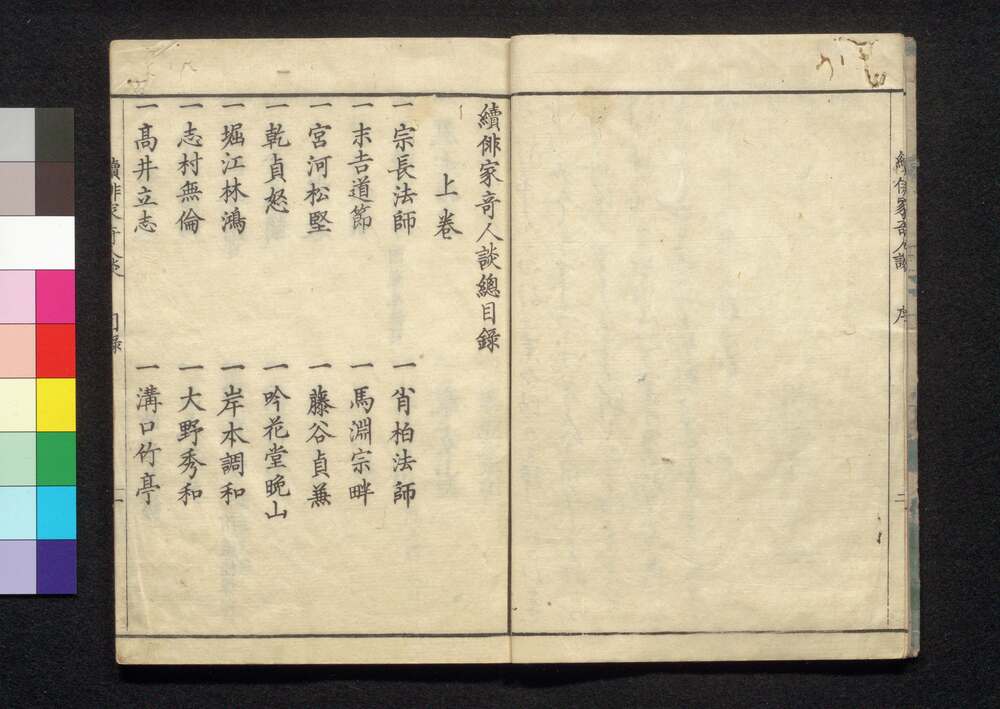 續俳家奇人談
序
二
續俳家竒人談總目錄
上卷
一宗長法師
一肖柏法師
一末吉道節
一馬淵宗畔
一宮河松堅
一藤谷貞兼
一乾貞恕
一吟花堂晩山
一堀江林鴻
一岸本調和
一志村無倫
一大野秀和
一髙井立志
一溝口竹亭
續俳家奇人談
目錄